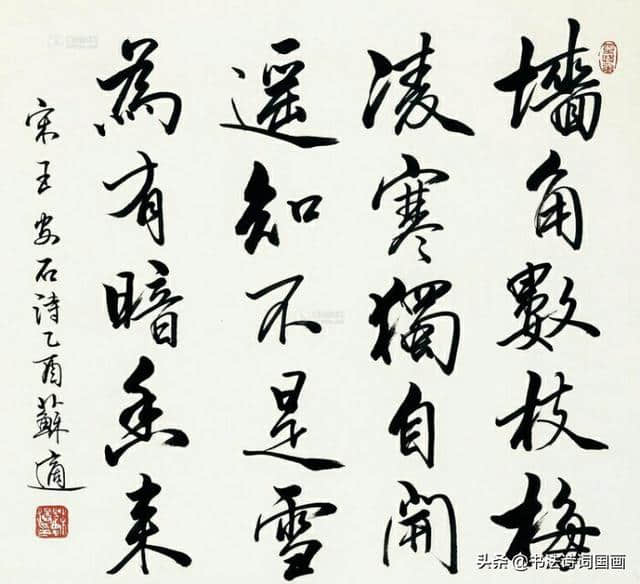 墻角數枝梅
凌寒獨自開
遥知不是雪
為有暗香来
宋王安石詩乙酉蘇適
头条@书法诗词国画